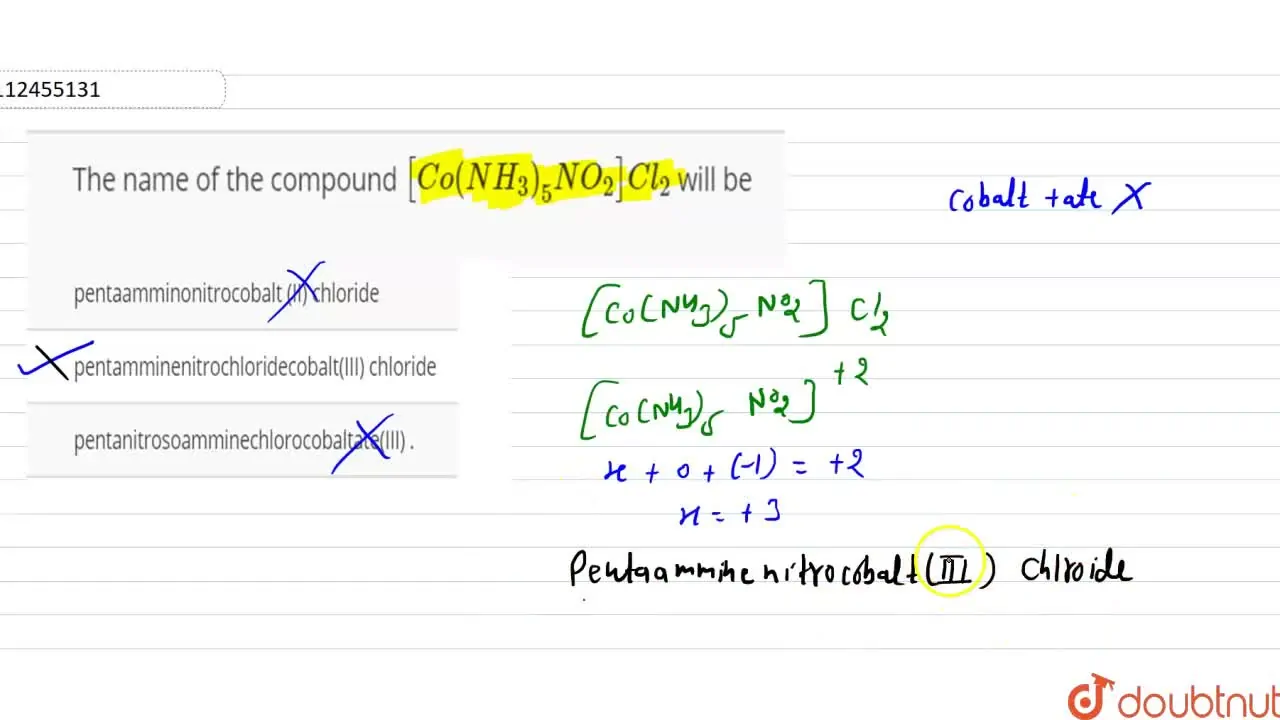 112455131
The name of the compound [Co(NH₃)₅NO₂]Cl₂ will be
cobalt +ate X
pentaamminonitrocobalt (II) chloride
pentamminenitrochloridecobalt(III) chloride
pentanitrosoamminechlorocobaltate(III) .
[Co(NH₃)₅ NO₂] Cl₂
[Co(NH₃)₅ NO₂]⁺²
x + 0 + (-1) = +2
x = +3
Pentaamminenitrocobalt(III) Chloride
doubtnut